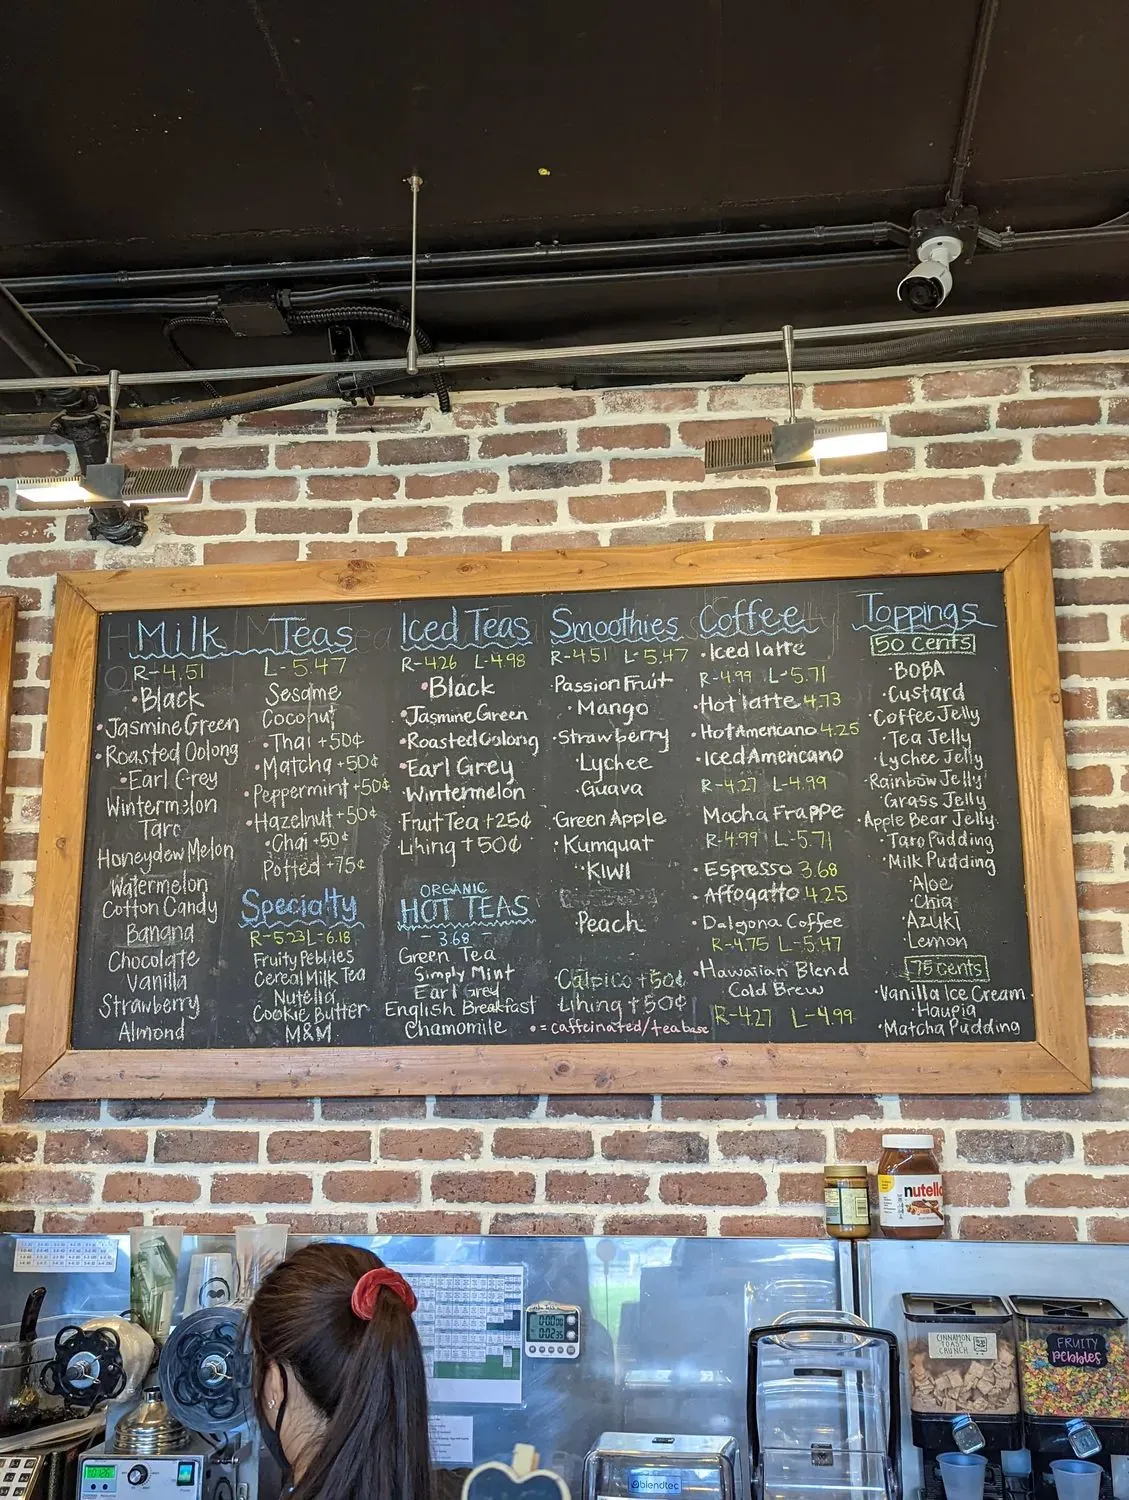 Milk Teas
R-4.51 L-5.47
·Black
·Jasmine Green
·Roasted Oolong
·Earl Grey
Wintermelon
Taro
Honeydew Melon
Watermelon
Cotton Candy
Banana
Chocolate
Vanilla
Strawberry
Almond
Sesame
Coconut
·Thai +50¢
·Matcha +50¢
·Peppermint +50¢
·Hazelnut +50¢
·Chai +50¢
Potted +75¢
Specialty
R-5.23 L-6.18
Fruity Pebbles
Cereal Milk Tea
Nutella
Cookie Butter
M&M
Iced Teas
R-4.26 L-4.98
·Black
·Jasmine Green
·Roasted Oolong
·Earl Grey
·Wintermelon
Fruit Tea +25¢
Lihing +50¢
ORGANIC
HOT TEAS
- 3.68 -
Green Tea
Simply Mint
Earl Grey
English Breakfast
Chamomile
Smoothies
R-4.51 L-5.47
·Passion Fruit
·Mango
·Strawberry
·Lychee
·Guava
·Green Apple
·Kumquat
·KIWI
Peach
·Calpico +50¢
Lihing +50¢
• = caffeinated/tea base
Coffee
·Iced latte
R-4.99 L-5.71
·Hot latte 4.73
·Hot Americano 4.25
·Iced Americano
R-4.27 L-4.99
Mocha Frappe
R-4.99 L-5.71
·Espresso 3.68
·Affogatto 4.25
·Dalgona Coffee
R-4.75 L-5.47
·Hawaiian Blend
Cold Brew
R-4.27 L-4.99
Toppings
50 cents
·BOBA
·Custard
·Coffee Jelly
·Tea Jelly
·Lychee Jelly
·Rainbow Jelly
·Grass Jelly
·Apple Bear Jelly
·Taro Pudding
·Milk Pudding
·Aloe
·Chia
·AZUKI
·Lemon
75 cents
·Vanilla Ice Cream
·Haupia
·Matcha Pudding
nutella
CINNAMON
TOAST
CRUNCH
FRUITY
Pebbles
blendtec